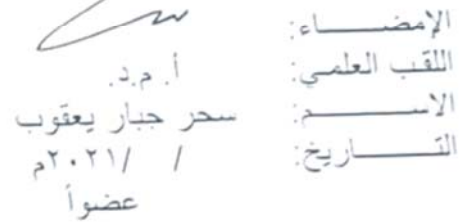 الإمضــــــاء:
اللقب العلمي: أ. م.د.
الاســــــــم: سحر جبار يعقوب
التــــــــاريخ: / /٢٠٢١م
عضواً